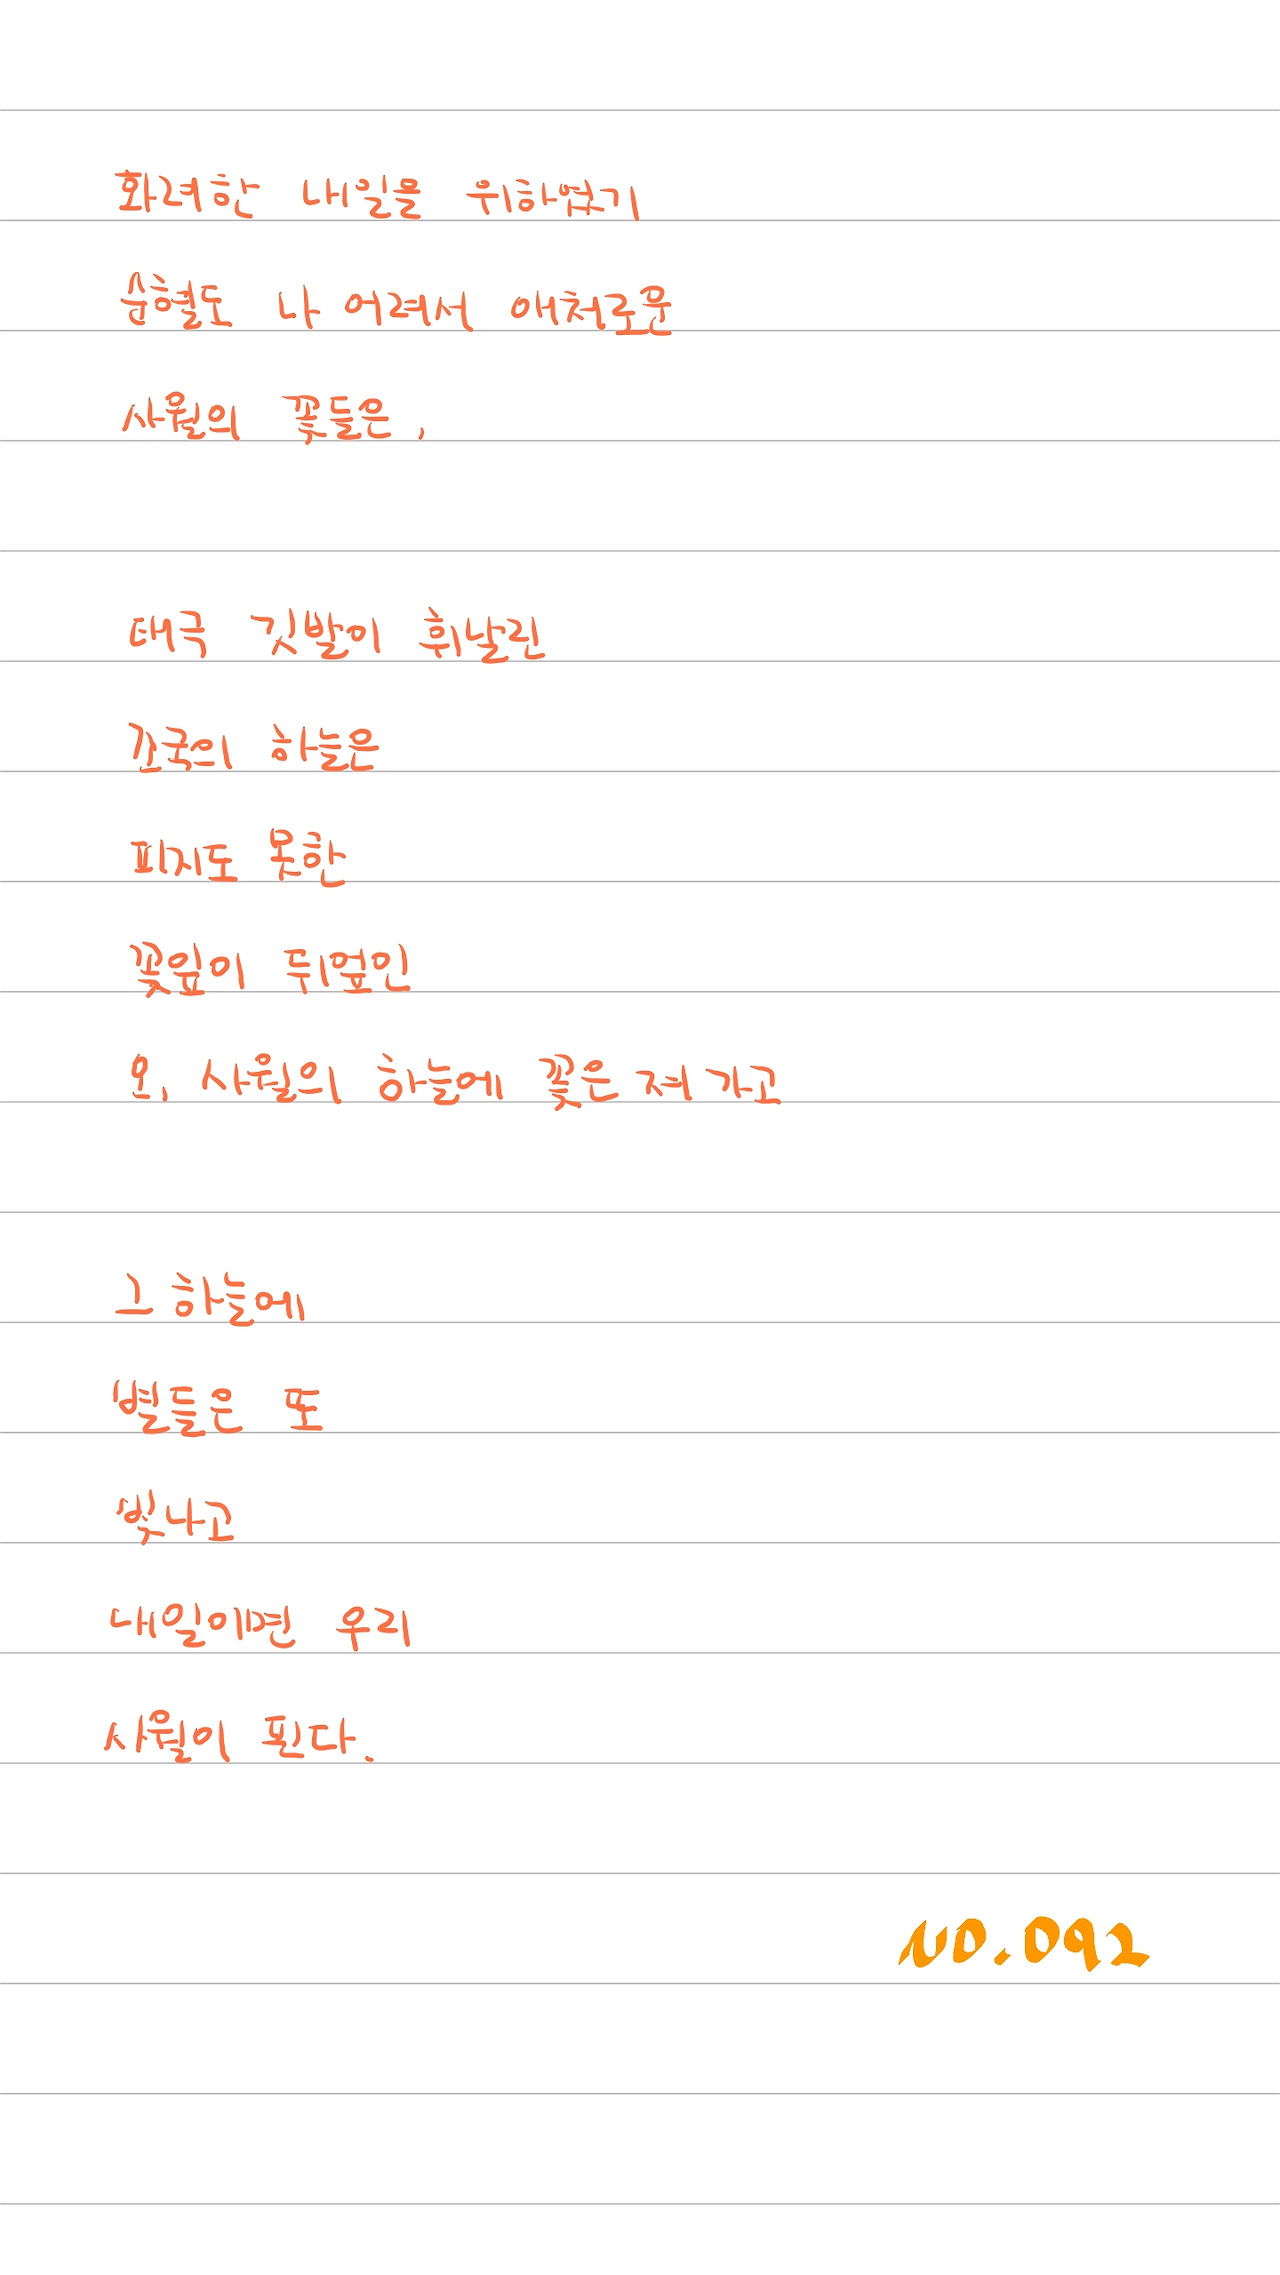 화려한 내일을 위하였기
순혈도 나 어려서 애처로운
사월의 꽃들은,
태극 깃발이 휘날린
조국의 하늘은
피지도 못한
꽃잎이 뒤엎인
오, 사월의 하늘에 꽃은 져 가고
그 하늘에
별들은 또
빛나고
내일이면 우리
사월이 핀다.
NO.092